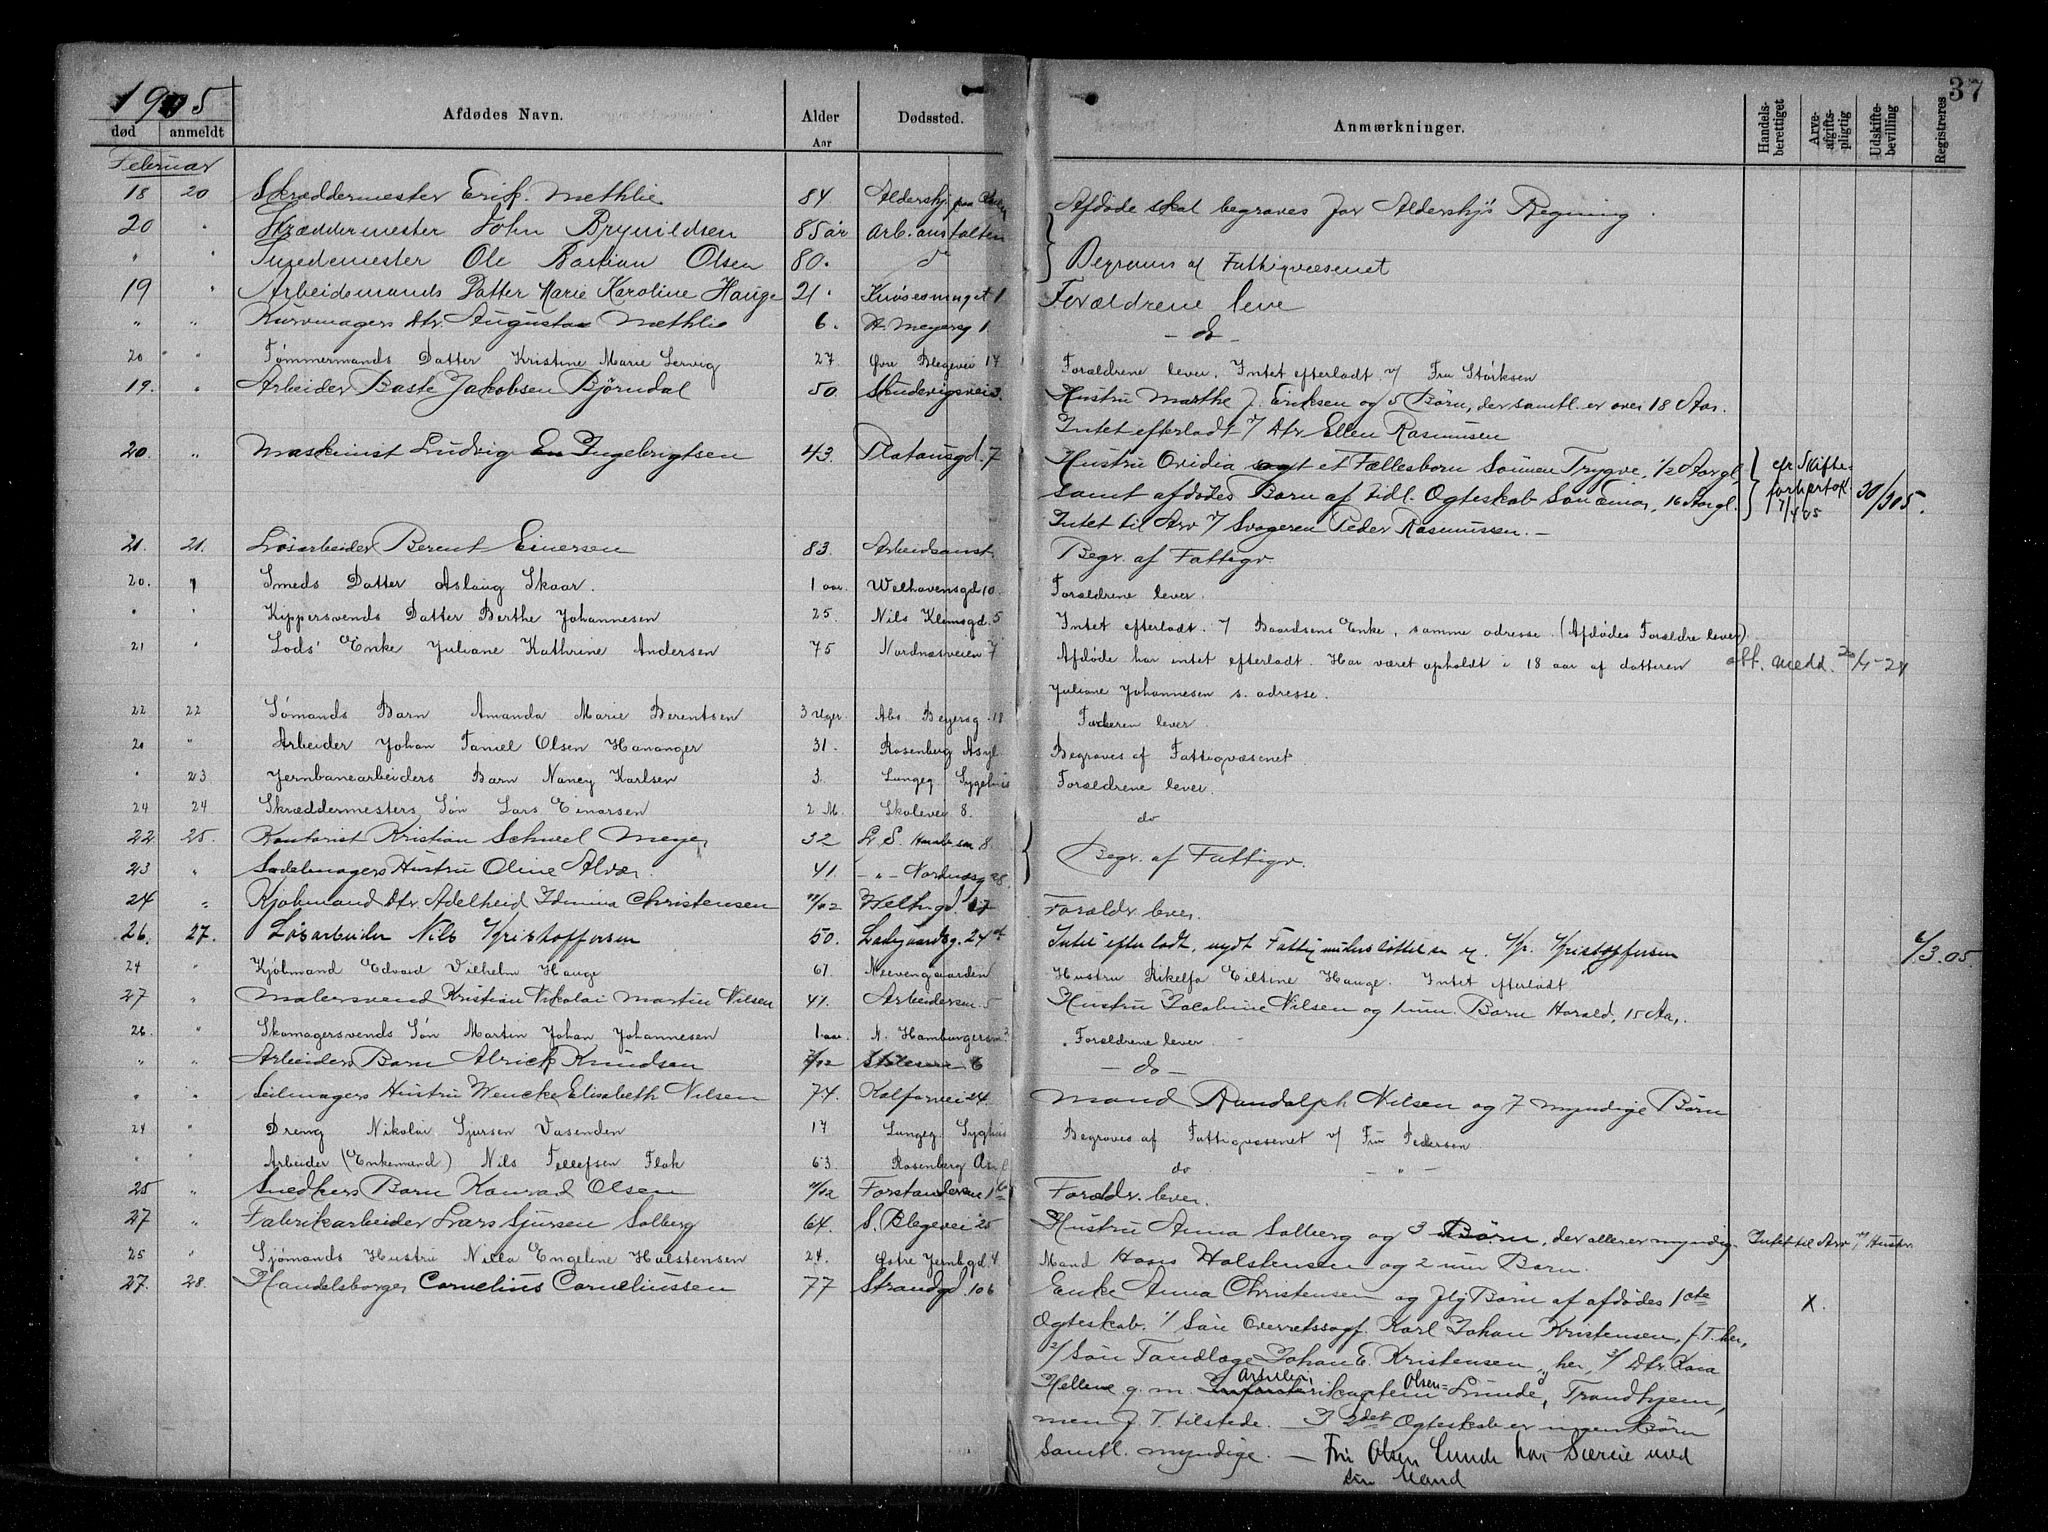 1905
37
død
anmeldt
Afdødes Navn.
Alder
Aar
Dødssted.
Anmærkninger.
Handelsberettiget
Arveafgiftspligtig
Udskiftebevilling
Registreres
Februar
18 20 Skræddermester Erik Methlie 84 Aldershj. paa Afdøde skal begraves for Aldershjs Regning.
20 " Skræddermester John Brynildsen 85 år Arb. anstalten
" " Ole Bastian Olsen 80. do Begraves af Fattigvæsenet
19 " Arbeidsmands Datter Marie Karoline Hauge 21 Knøsesmuget 1 Forældrene leve
" " Kurvmagers Dtr. Augusta Methlie 6. H. Meyersg 1 - do -
20 " Tømmermands Datter Kristine Marie Lervig 27 Øvre Blegevei 17 Forældrene lever. Intet efterladt. v/ Fru Størksen
19. " Arbeider Baste Jakobsen Bjørndal 50. Skudevigsvei 3. Hustru Marthe J. Eriksen og 5 Børn, der samtl. er over 18 Aar.
Intet efterladt v/ Dtr Ellen Rasmussen
20. " Maskinist Ludvig Ingebrigtsen 43. Platousgd. 7 Hustru Ovidia og et Fællesbarn Sønnen Trygve, 1/2 Aargl. cfr Skifte-
samt afdødes Barn af tidl. Ogteskab Søn Einar, 16 Aargl. forhørtok. 30/305.
Intet til Arv v/ Svogeren Peder Rasmussen. - 7/4 05
21. 21. Løsarbeider Berent Einersen 83. Arbeidsanst. Begr. af Fattigv.
20. " Smeds Datter Aslaug Skaar. 1 aar. Welhavensgd 10. Forældrene lever.
" " Kippersvends Datter Berthe Johannesen 25. Nils Klemsgd. 5 Intet efterladt. v/ Baardsens Enke, samme adresse. (Afdødes Forældre lever).
21 " Lods' Enke Juliane Kathrine Andersen 75 Nordnæsveien 7 Afdøde har intet efterladt. Har været opholdt i 18 aar af datteren att. medd. 20/5-24
Juliane Johannesen s. adresse.
22 22 Sømands Barn Amanda Marie Berentsen 3 Uger Abs. Beyersg. 18 Faderen lever.
20 " Arbeider Johan Daniel Olsen Hananger 31. Rosenberg Asyl Begraves af Fattigvæsenet
" 23 Jernbanearbeiders Barn Nancy Karlsen 3. Lungeg. Sygehus Forældrene lever.
24 24 Skræddermesters Søn Lars Einarsen 2 M. Skolevei 8. do
22. 25. Kontorist Kristian Schneel Meyer 32 8
23 " Sadelmagers Hustru Oline Alvær. 41 - " - Nordnæsg 28. Begr. af Fattigv.
24 " Kjøbmand Dtr. Adelheid Idunna Christensen 11/12 Welhgd. 17 Forældr. lever.
26. 27. Løsarbeider Nils Kristoffersen 50. Ladegaardsg. 24 Intet efterladt, nydt Fattigunderstøttelse v. Kr. Kristoffersen 6/3.05.
24 " Kjøbmand Edvard Vilhelm Hauge 61 Neevengaarden Hustru Rikelfa Eiltine Hauge. Intet efterladt
27 " Malersvend Kristian Nikolai Martin Nilsen 41. Arbeidersm. 5 Hustru Jacobine Nilsen og 1 um. Barn Harald, 15 Aar.
26. " Skomagersvends Søn Martin Johan Johannesen 1 aar N. Hamburgersm. 2 Forældrene lever.
" " Arbeiders Barn Alrick Knudsen 7/12 Stølesm 6 - do -
" " Seilmagers Hustru Wencke Elisabeth Nilsen 74. Kalfarvei 24. Mand Randolph Nilsen og 7 myndige Børn
24 " Dreng Nikolai Sjursen Vasenden 17 Lungeg. Syghus Begraves af Fattigvæsenet v/ Fru Pedersen.
" " Arbeider (Enkemand) Nils Tellefsen Flak 63. Rosenberg Asyl do - " -
25 " Snedkers Barn Konrad Olsen 11/12 Forstandersm 1 Forældr. lever.
27 " Fabrikarbeider Lars Sjursen Solberg 64. S. Blegevei 25 Hustru Anna Solberg og 3 Børn, der aller er myndig. Intet til Arv, v/ Hustr.
25 " Sjømands Hustru Nilla Engeline Halstensen 24. Østre Jernbgd. 4 Mand Hans Halstensen og 2 um Barn.
27. 28. Handelsborger Cornelius Corneliussen 77 Strandgd 106 Enke Anna Christensen og flg Børn af afdødes 1ste X.
Ogteskab. 1/ Søn Overretssagf. Karl Johan Kristensen, f. T. her,
2/ Søn Tandlæge Johan E. Kristensen, her, 3/ Dtr. Kaia
Hellene g. m. Artilleri kaptein Olsen-Lunde, Trondhjem,
men f. T. tilstede. - I 2det Ogteskab er ingen Børn
Samtl. myndige. - Fru Olsen Lunde har Særeie med
sin Mand